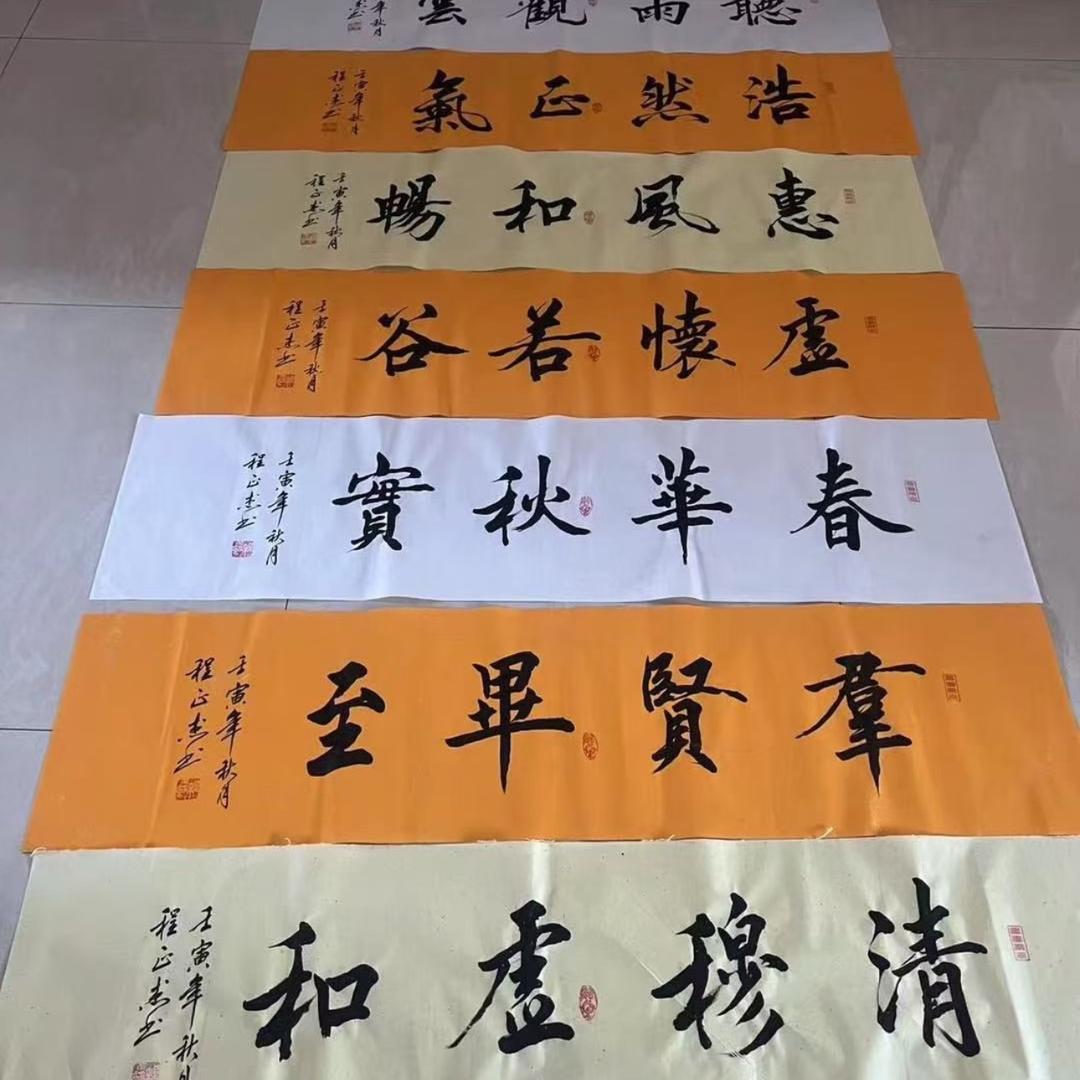 聽雨觀雲
年秋月
杰书
浩然正氣
壬寅年秋月
程正杰书
惠風和暢
壬寅年秋月
程正杰书
虛懷若谷
壬寅年秋月
程正杰书
春華秋實
壬寅年秋月
程正杰书
羣賢畢至
壬寅年秋月
程正杰书
清穆虛和
壬寅年秋月
程正杰书